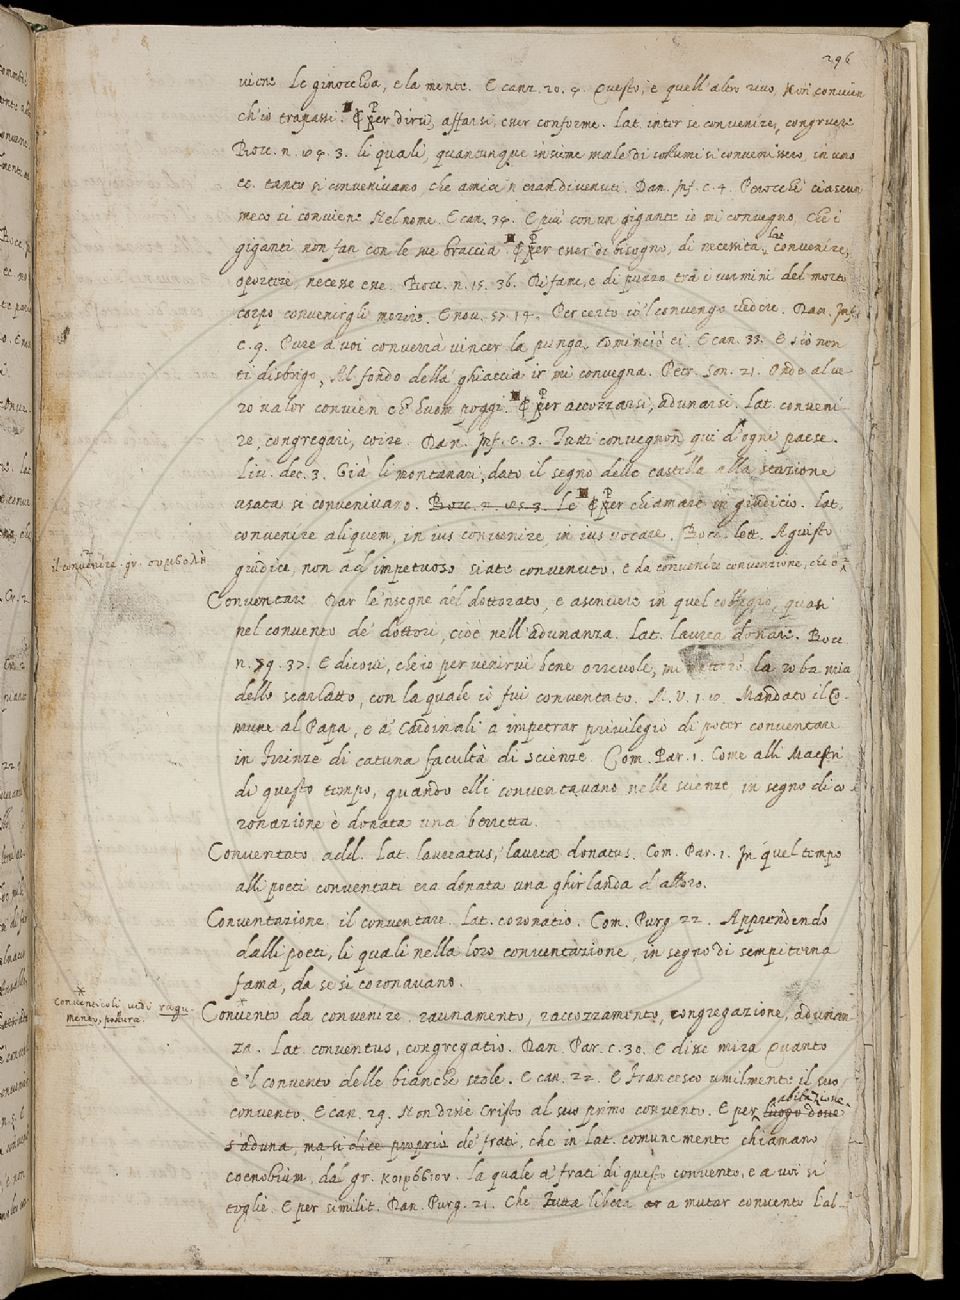 296
viene Le ginocchia, e la mente. E cant. 20. 4. Questo, e quell'altro rivo, Non convien
ch'io trapassi. ¶ Per dirsi, affarsi, esser conforme. Lat. inter se convenire, congruere
Bocc. n. 3. li quali, quantunque insieme male di costumi si convenissero, in uno
ec. tanto si convenivano che amici n'eran divenuti. Dan. Inf. c. 4. Perocchè ciascun
meco si conviene Nel nome. E can. 34. E più con un gigante io mi convegno, Che i
giganti non fan con le sue braccia ¶ Per esser di bisogno, di necessità, convenire,
oportere, necesse esse. Bocc. n. 15. 36. Di fame, e di puzzo tra i vermini del morto
corpo convenirgli morire. E nov. 57. 14. Per certo io'l convengo vedere. Dan. Inf.
c. 9. Pure a voi converrà vincer la punga, Cominciò ei. E can. 33. E s'io non
ti disbrigo, Al fondo della ghiaccia ir mi convegna. Petr. Son. 21. Onde al ve-
ro valor convien ch'huom poggi. ¶ Per accozzarsi, adunarsi. Lat. conveni-
re, congregari, coire. Dan. Inf. c. 3. Tutti convegnon qui d'ogni paese.
Liv. dec. 3. Già li montanari, dato il segno delle castella alla stazione
usata si convenivano. ¶ Per chiamare in giudicio. Lat.
convenire aliquem, in ius convenire, in ius vocare. Bocc. lett. A giusto
il convenire. gr. συμβολὴ
giudice, non ad impetuoso siate convenuto. E da convenire convenzione, che è
Conventare Dar le'nsegne del dottorato, e ascrivere in quel collegio, quasi
nel convento de' dottori, cioè nell'adunanza. Lat. laurea donare. Bocc.
n. 79. 37. E dicovi, che io per venirvi bene orrevole, mi metterò la roba mia
dello scarlatto, con la quale io fui conventato. M. V. 1. Mandato il Co-
mune al Papa, e a' Cardinali a impetrar privilegio di poter conventare
in Firenze di catuna facultà di scienze. Com. Par. 1. Come alli Maestri
di questo tempo, quando elli conventavano nelle scienze, in segno di co-
ronazione è donata una berretta.
Conventato add. Lat. laureatus, laurea donatus. Com. Par. 1. In quel tempo
alli poeti conventati era donata una ghirlanda d'alloro.
Conventazione il conventare. Lat. coronatio. Com. Purg. 22. Apprendendo
dalli poeti, li quali nella loro conventazione, in segno di sempiterna
fama, da se si coronavano.
Conventicoli, vedi ragu-
mento, postura.
Convento da convenire, raunamento, raccozzamento, congregazione, adunan-
za. Lat. conventus, congregatio. Dan. Par. c. 30. E disse mira Quanto
è'l convento delle bianche stole. E can. 22. E Francesco umilmente il suo
convento. E can. 29. Non disse Cristo al suo primo convento. E per luogo dove abitazione
s'aduna, ma si dice proprio de' frati, che in Lat. comunemente chiamano
coenobium, dal gr. κοινόβιον. La quale a' frati di questo convento, e a voi si
toglie. E per similit. Dan. Purg. 21. Che Tutta libera a mutar convento L'al-